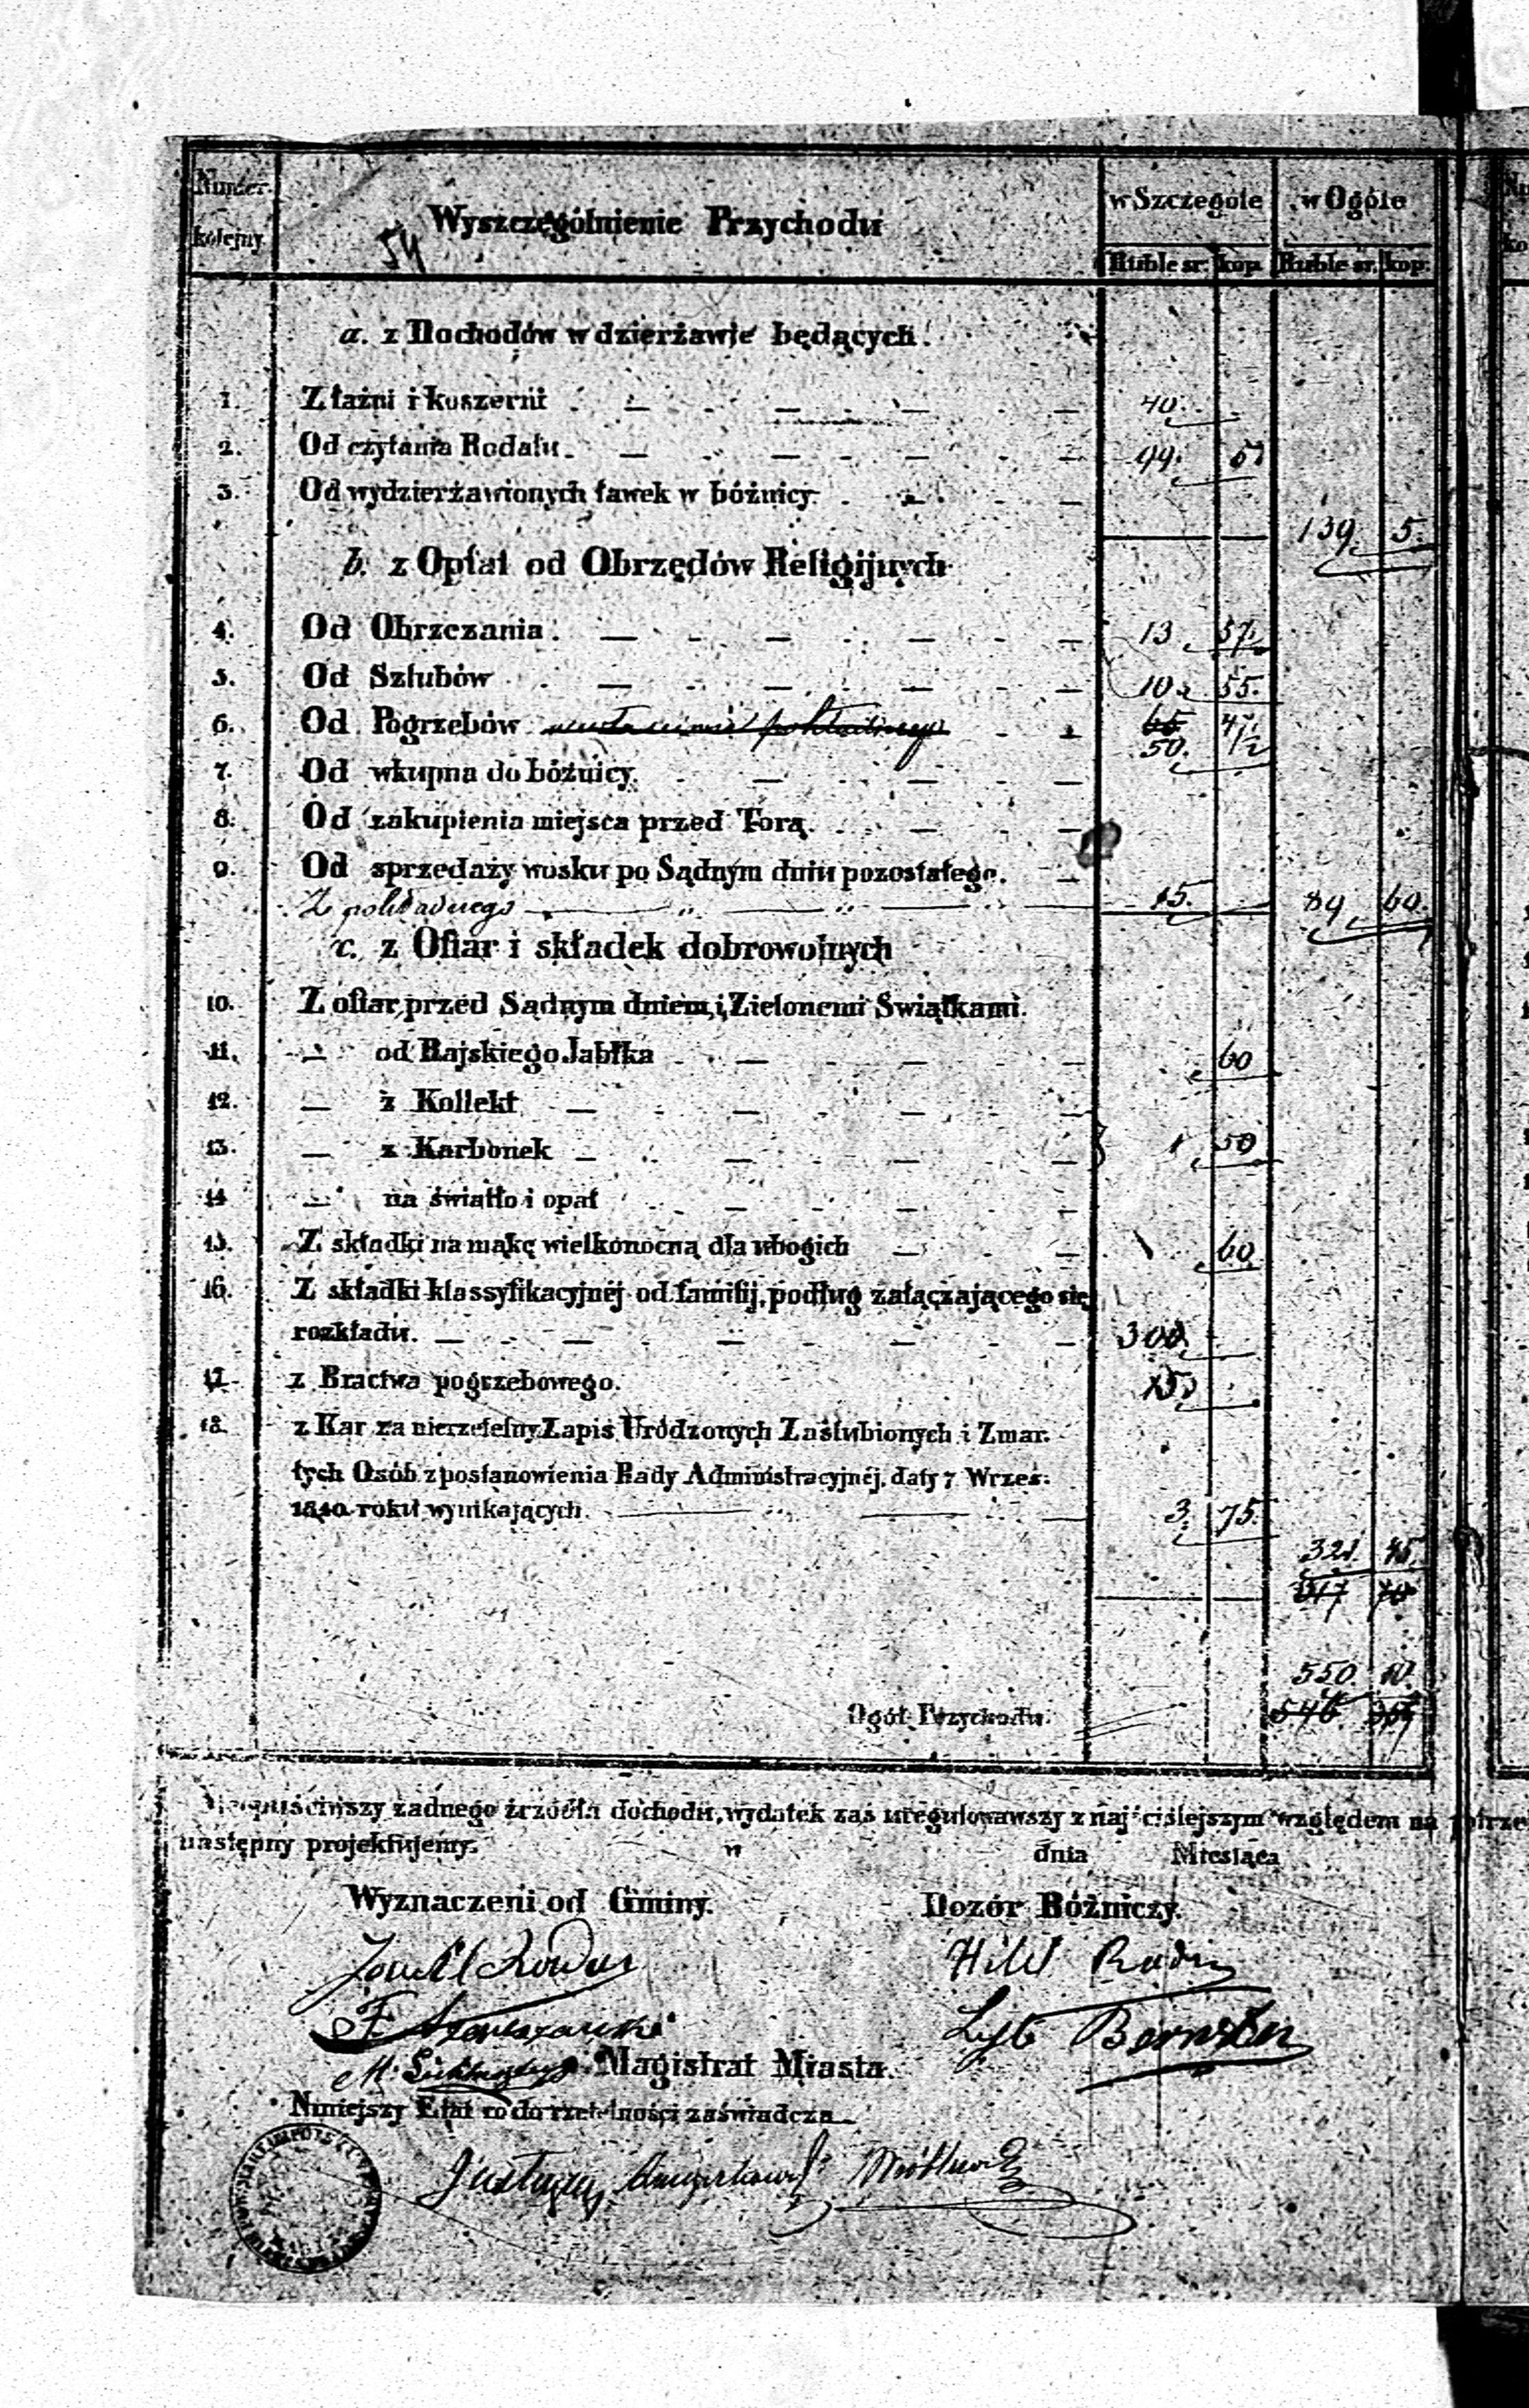 Numer kolejny
Wyszczególnienie Przychodu
54
w Szczególe w Ogóle
Ruble sr. kop. Ruble sr. kop.
a. z Dochodów w dzierżawie będących.
1. Z łaźni i koszerni 40.
2. Od czytania Rodału 99. 5
3. Od wydzierżawionych ławek w bóżnicy
139. 5.
b. z Opłat od Obrzędów Religijnych
4. Od Obrzezania 13
5. Od Szlubów 10. 55.
6. Od Pogrzebów 50.
7. Od wkupna do bóżnicy.
8. Od zakupienia miejsca przed Torą.
9. Od sprzedaży wosku po Sądnym dniu pozostałego.
Z pokładnego 15. 89. 60.
c. z Ofiar i składek dobrowolnych
10. Z ofiar przed Sądnym dniem, i Zielonemi Swiątkami.
11. — od Rajskiego Jabłka 60
12. — z Kollekt
13. — z Karbonek 1 50
14 — na światło i opał
15. Z składki na mąkę wielkonocną dla ubogich 60
16. Z składki klassyfikacyjnéj od familij, podług załączającego się
rozkładu. 300.
17. z Bractwa pogrzebowego. 15
18. z Kar za nierzetelny Zapis Urodzonych Zaślubionych i Zmar.
łych Osób z postanowienia Rady Administracyjnéj, daty 7 Wrześ:
1840 roku wynikających. 3. 75.
321. 45.
550. 10.
Ogół Przychodu.
546
Nieopuściwszy żadnego źrzódła dochodu, wydatek zaś uregulowawszy z najściślejszym względem na
następny projektujemy. w dnia Miesiąca
Wyznaczeni od Gminy. Dozór Bóżniczy.
Magistrat Miasta.
Niniejszy Etat co do rzetelności zaświadcza